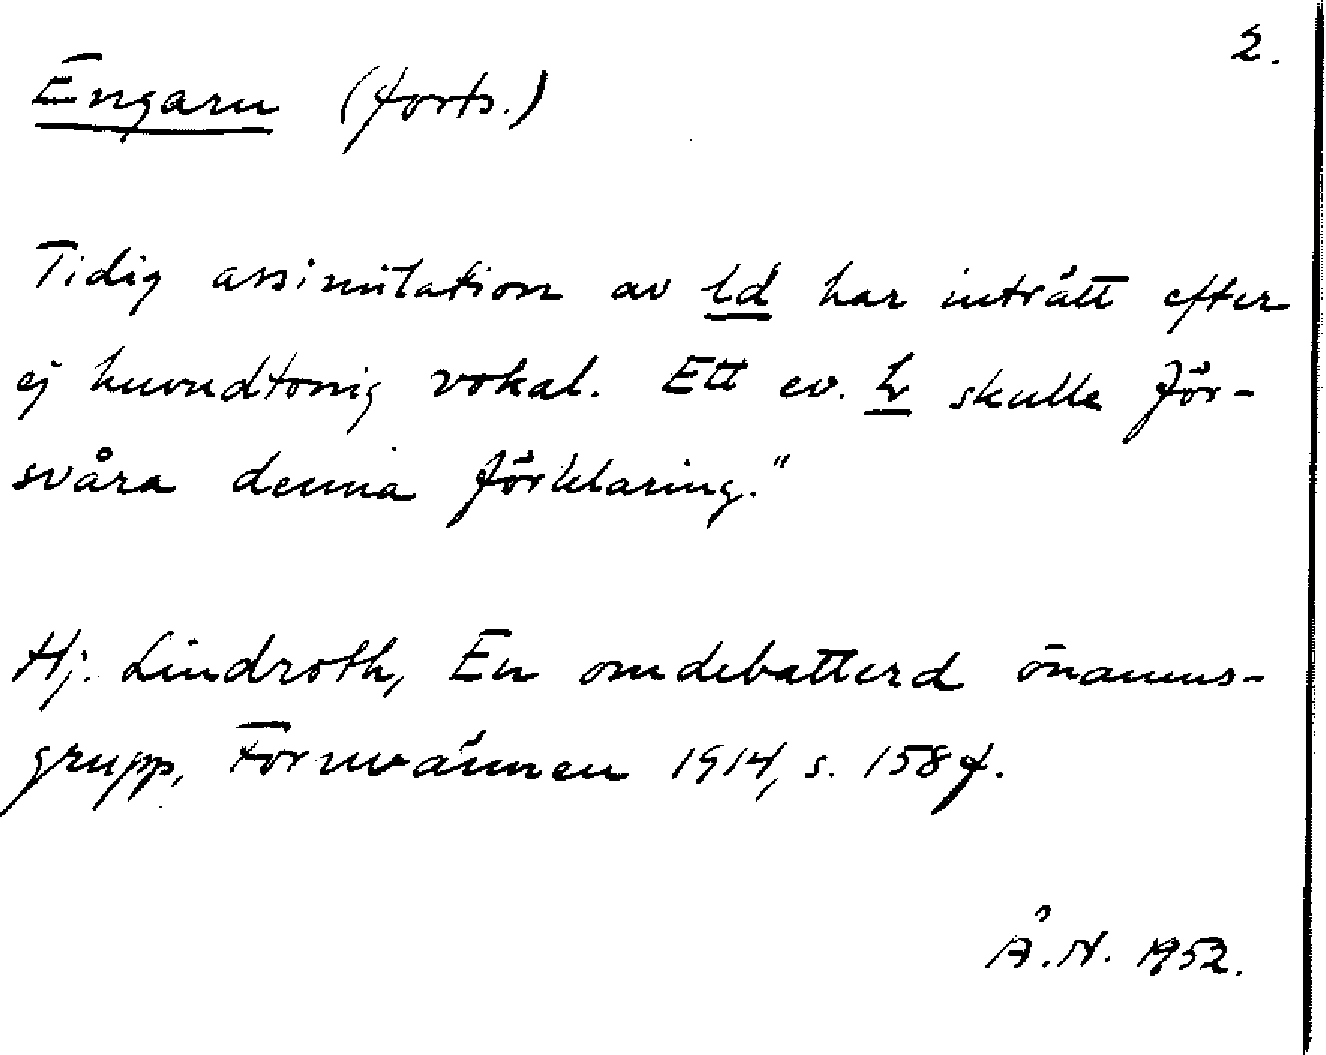 2.
Engarn (forts.)
Tidig assimilation av ld har inträtt efter
ej huvudtonig vokal. Ett ev. hv skulle för-
svåra denna förklaring."
Hj. Lindroth, En omdebatterd önamns-
grupp, Fornvännen 1914, s. 158 f.
Å.N. 1952.